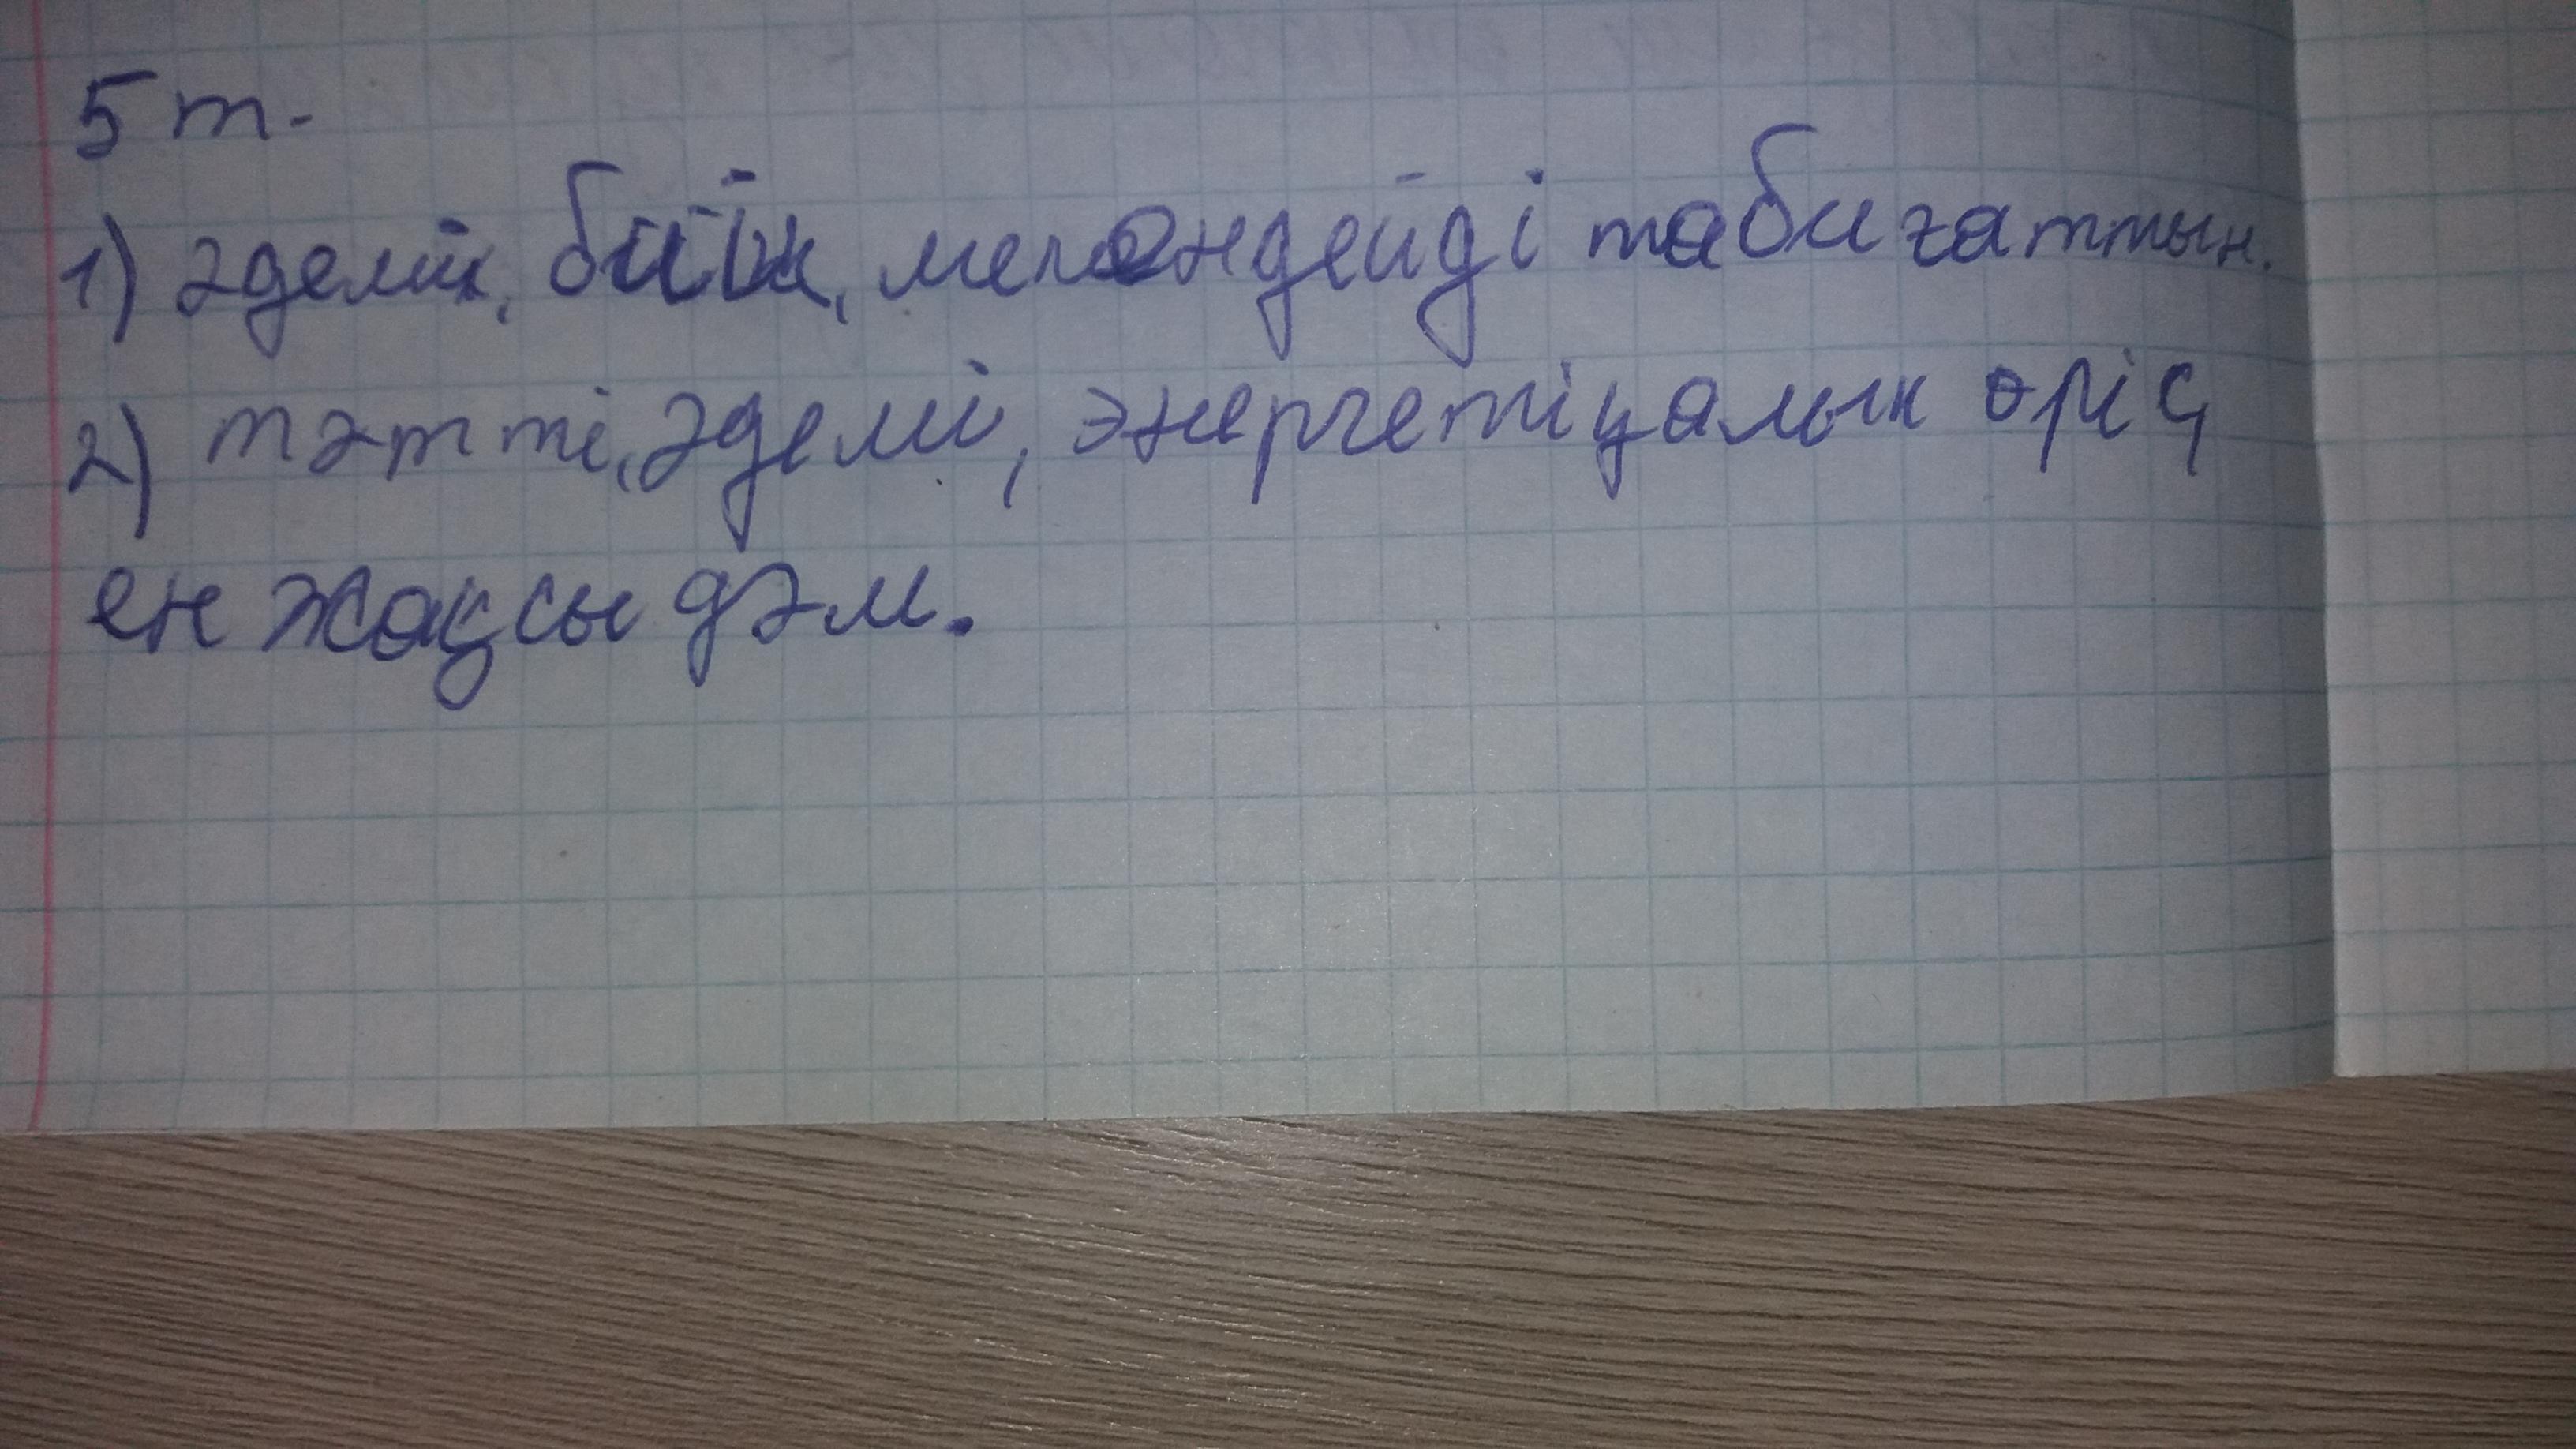 5 т.
1) әдемі, биік, мекендейді табиғаттың.
2) тәтті, әдемі, энергетіқалық өріс,
ең жақсы дәм.